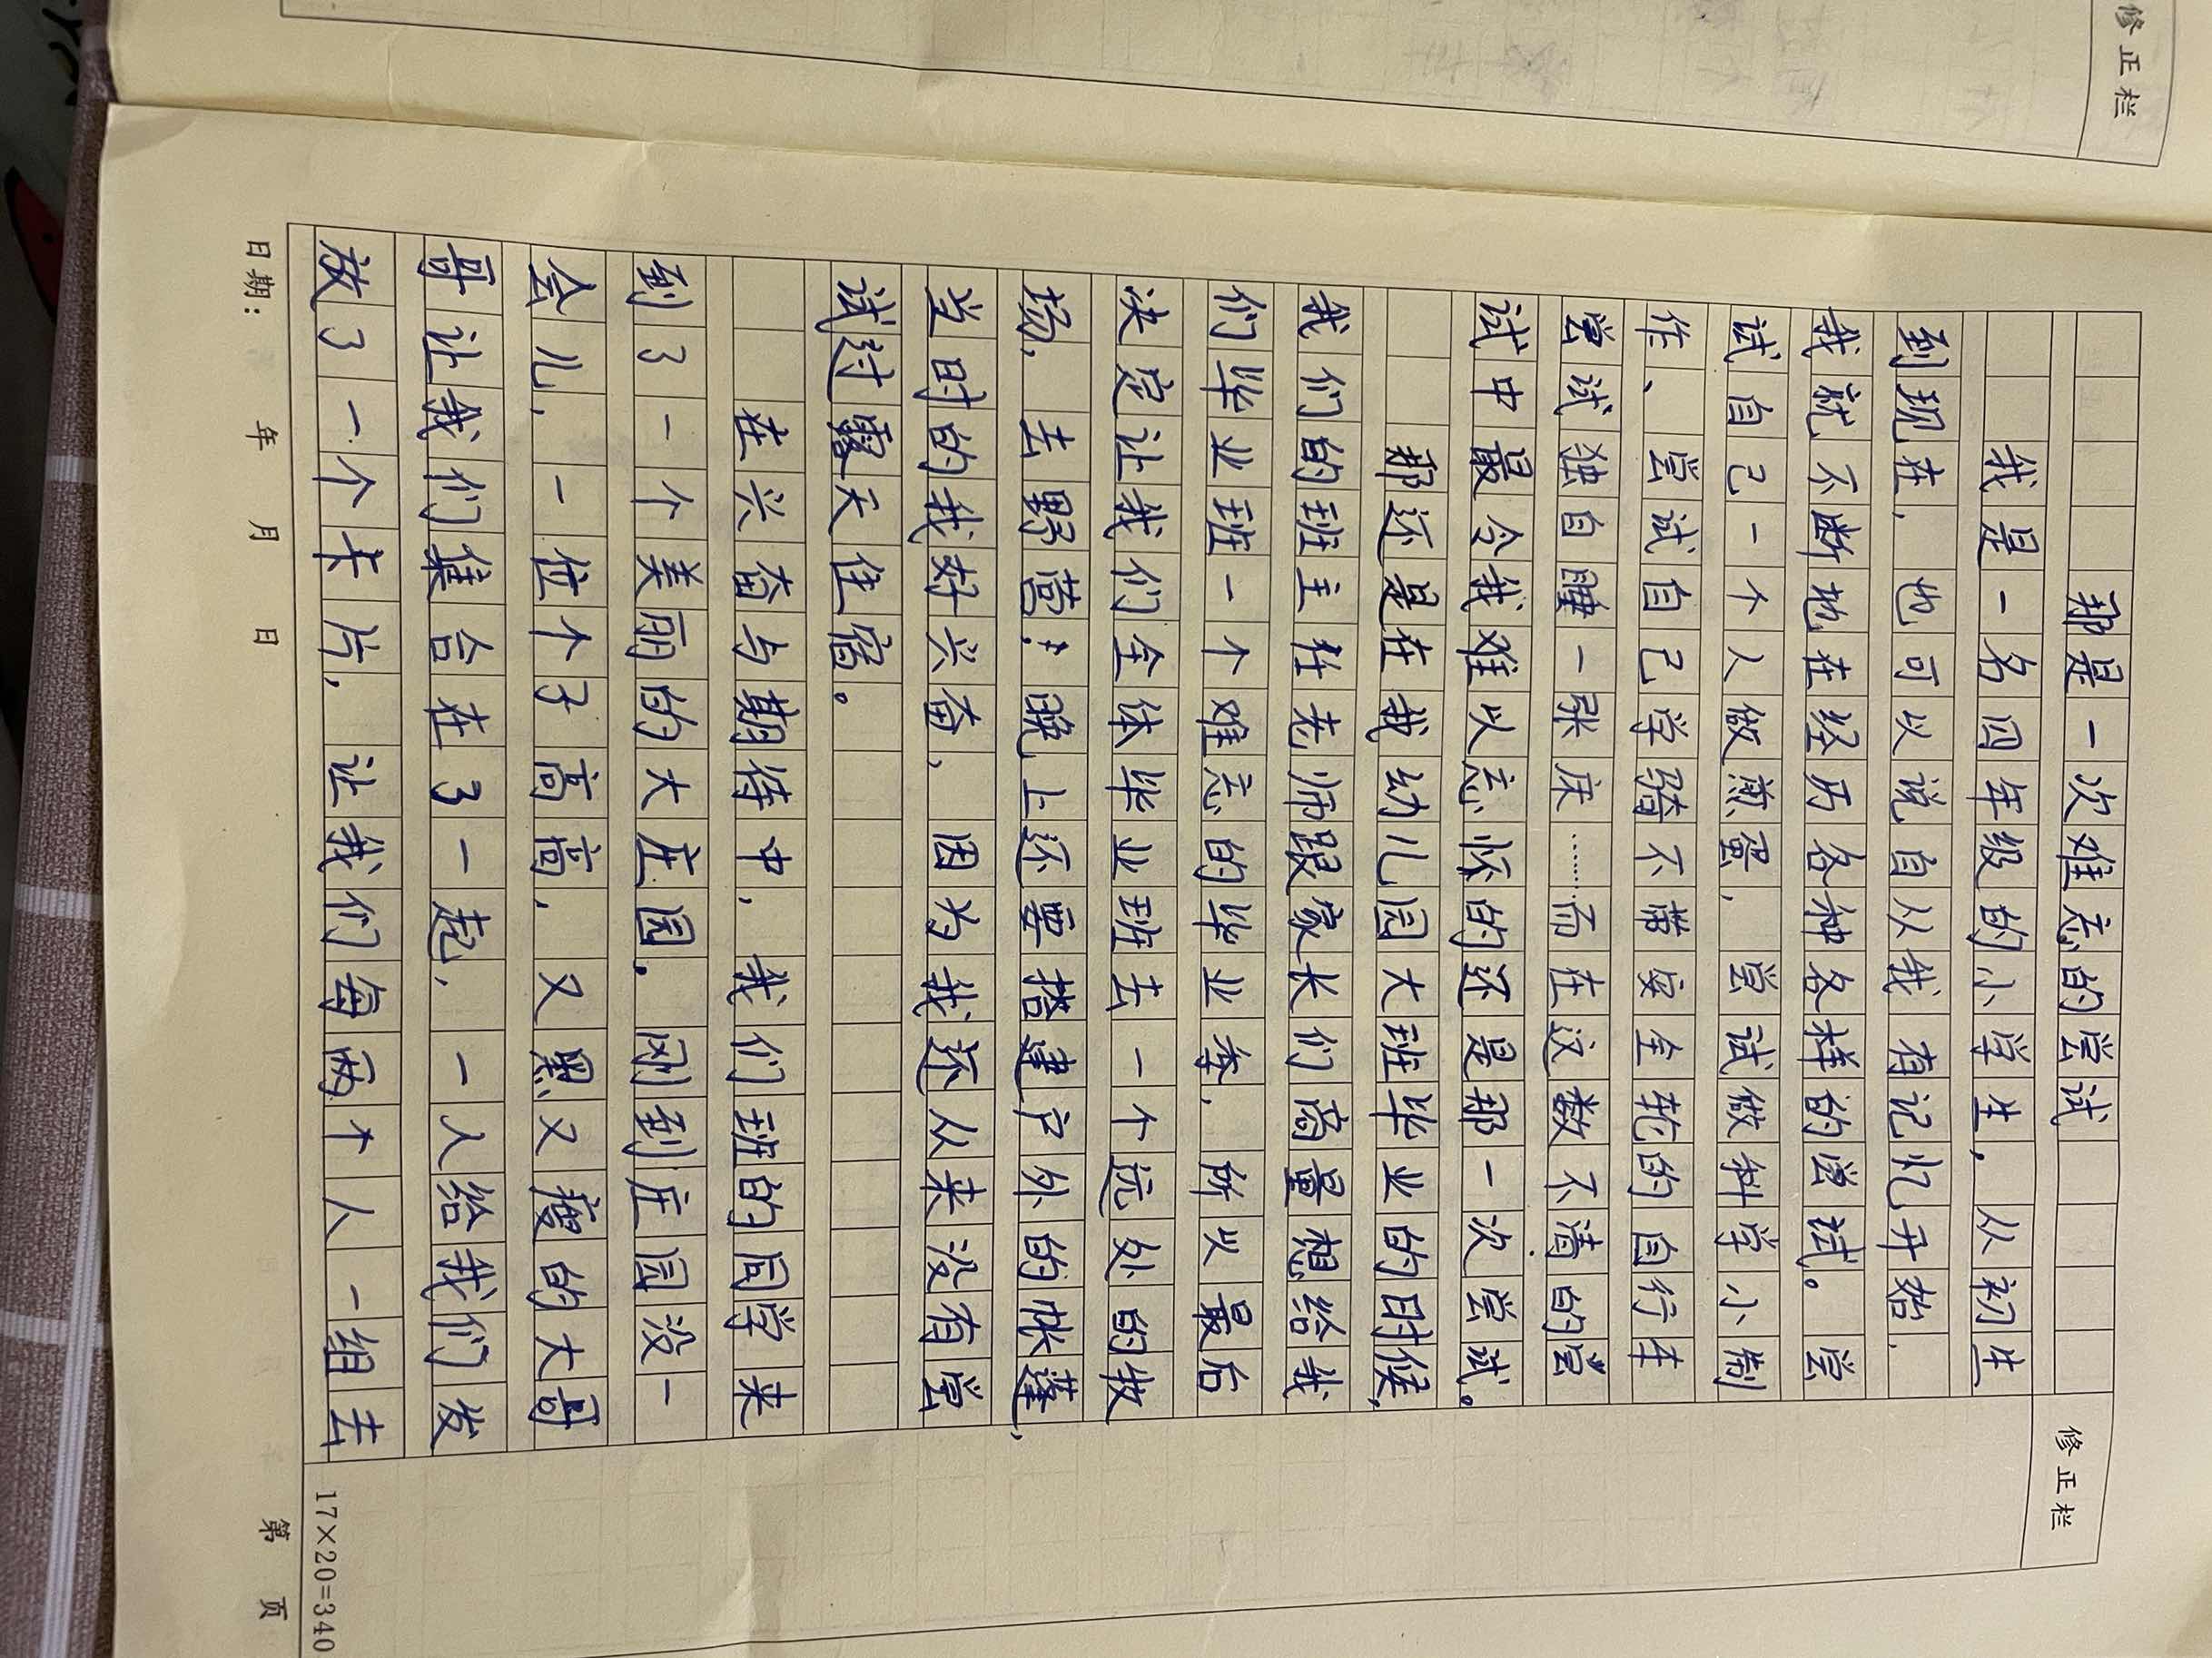 修正栏
修正栏
那是一次难忘的尝试
我是一名四年级的小学生，从初生
到现在，也可以说自从我有记忆开始，
我就不断地在经历各种各样的尝试。尝
试自己一个人做煎蛋，尝试做科学小制
作、尝试自己学骑不带安全轮的自行车
尝试独自睡一张床……而在这数不清的尝
试中最令我难以忘怀的还是那一次尝试。
那还是在我幼儿园大班毕业的时候，
我们的班主任老师跟家长们商量想给我
们毕业班一个难忘的毕业季，所以最后
决定让我们全体毕业班去一个远处的牧
场，去野营！晚上还要搭建户外的帐蓬，
当时的我好兴奋，因为我还从来没有尝
试过露天住宿。
在兴奋与期待中，我们班的同学来
到了一个美丽的大庄园，刚到庄园没一
会儿，一位个子高高，又黑又瘦的大哥
哥让我们集合在了一起，一人给我们发
放了一个卡片，让我们每两个人一组去
日期： 年 月 日
17×20=340
第 页